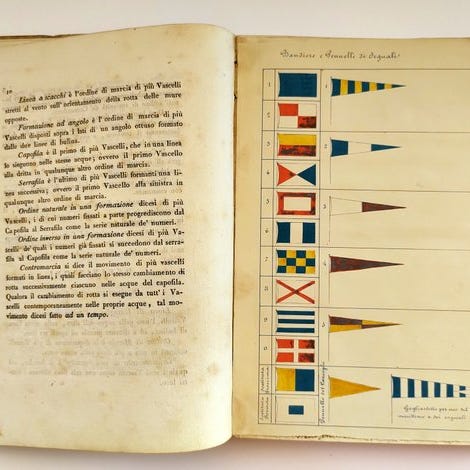 Linea a scacchi è l'ordine di marcia di più Vascelli
stretti al vento sull'orientamento della rotta delle mure
opposte.
Formazione ad angolo è l'ordine di marcia di più
Vascelli disposti sopra i lati di un angolo ottuso formato
dalle due linee di bulina.
Capofila è il primo di più Vascelli, che in una linea
lo sieguono nelle stesse acque; ovvero il primo Vascello
alla dritta in qualunque altro ordine di marcia.
Serrafila è l'ultimo di più Vascelli formanti una li-
nea successiva; ovvero il primo Vascello alla sinistra in
qualunque altro ordine di marcia.
Ordine naturale in una formazione dicesi di più Va-
scelli, i di cui numeri fissati a parte progrediscono dal
Capofila al Serrafila come la serie naturale de' numeri.
Ordine inverso in una formazione dicesi di più Va-
scelli de' quali i numeri già fissati si succedono dal serra-
fila al Capofila come la serie naturale de' numeri.
Contromarcia si dice il movimento di più Vascelli
formati in linea, i quali facciano lo stesso cambiamento di
rotta successivamente ciascuno nelle acque del capofila.
Qualora il cambiamento di rotta si esegue da tutt' i Va-
scelli contemporaneamente nelle proprie acque, tal mo-
vimento dicesi fatto ad un tempo.
Bandiere e Pennelli di Segnali
1
1
2
2
3
3
4
5
6
7
4
8
9
5